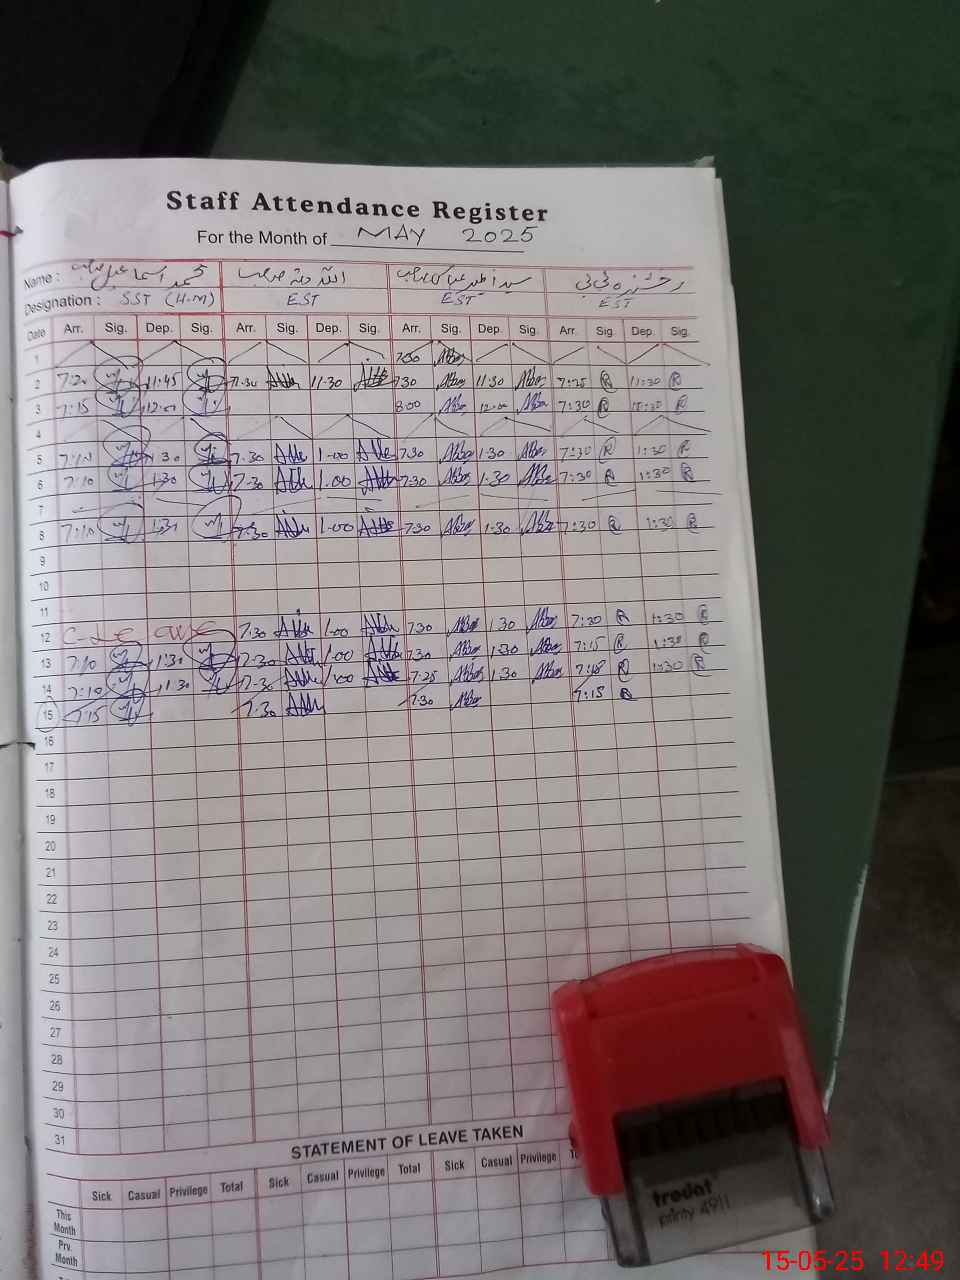 Staff Attendance Register
For the Month of MAY 2025
Name : محمد اسماعیل صاحب اللہ دتہ صاحب سید اظہر عباس صاحب رخشندہ بی بی
Designation : SST (H.M) EST EST EST
Date Arr. Sig. Dep. Sig. Arr. Sig. Dep. Sig. Arr. Sig. Dep. Sig. Arr. Sig. Dep. Sig.
1 7:30
2 7:20 11:45 7:30 11:30 7:30 11:30 7:25 11:30
3 7:15 12:00 8:00 12:00 7:30
4
5 7:10 1:30 7:30 1-00 7:30 1:30 7:30 1:30
6 7:10 1:30 7-30 1.00 7:30 1:30 7:30 1:30
7
8 7:10 1:30 7:30 1-00 7:30 1:30 7:30 1:30
9
10
11
12 C-Leave 7:30 1-00 7:30 1:30 7:30 1:30
13 7:10 1:30 7-30 1-00 7:30 1:30 7:15 1:30
14 7:10 1:30 7-30 1-00 7:25 1:30 1:30
15 7:15 7:30 7:30 7:15
16
17
18
19
20
21
22
23
24
25
26
27
28
29
30
31
STATEMENT OF LEAVE TAKEN
Sick Casual Privilege Total Sick Casual Privilege Total Sick Casual Privilege
This Month
Prv. Month
trodat
printy 4911
15-05-25 12:49